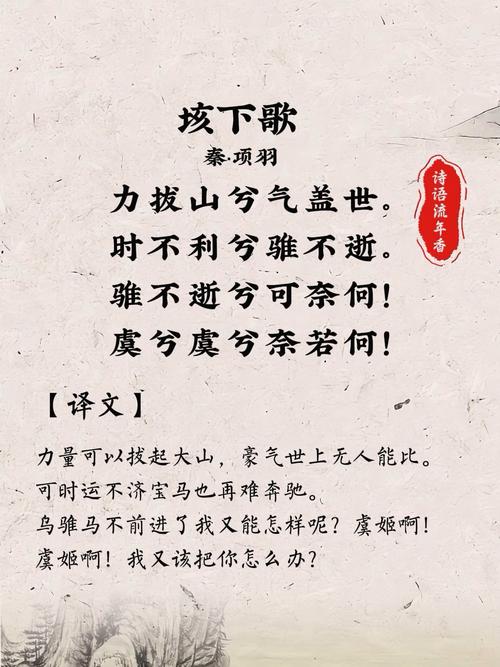 垓下歌
秦·项羽
力拔山兮气盖世。
时不利兮骓不逝。
骓不逝兮可奈何！
虞兮虞兮奈若何！
诗语流年香
【译文】
力量可以拔起大山，豪气世上无人能比。
可时运不济宝马也再难奔驰。
乌骓马不前进了我又能怎样呢？虞姬啊！
虞姬啊！我又该把你怎么办？